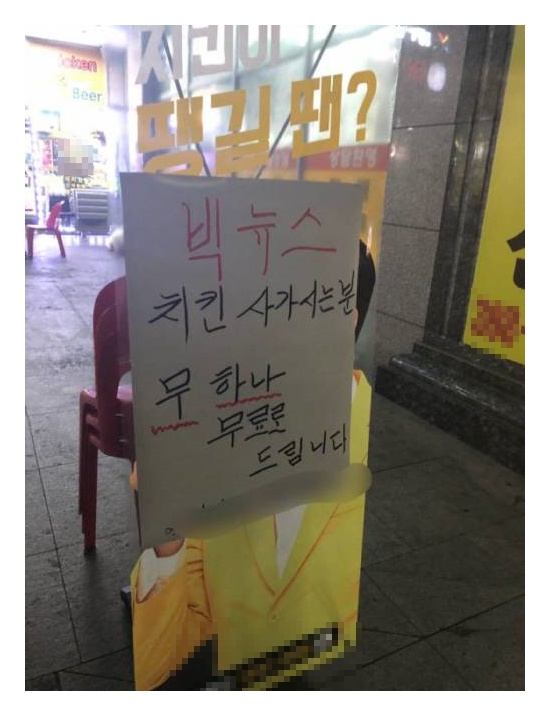 치킨이
땡길 땐?
Beer
빅뉴스
치킨 사가시는분
무 하나
무료로
드립니다